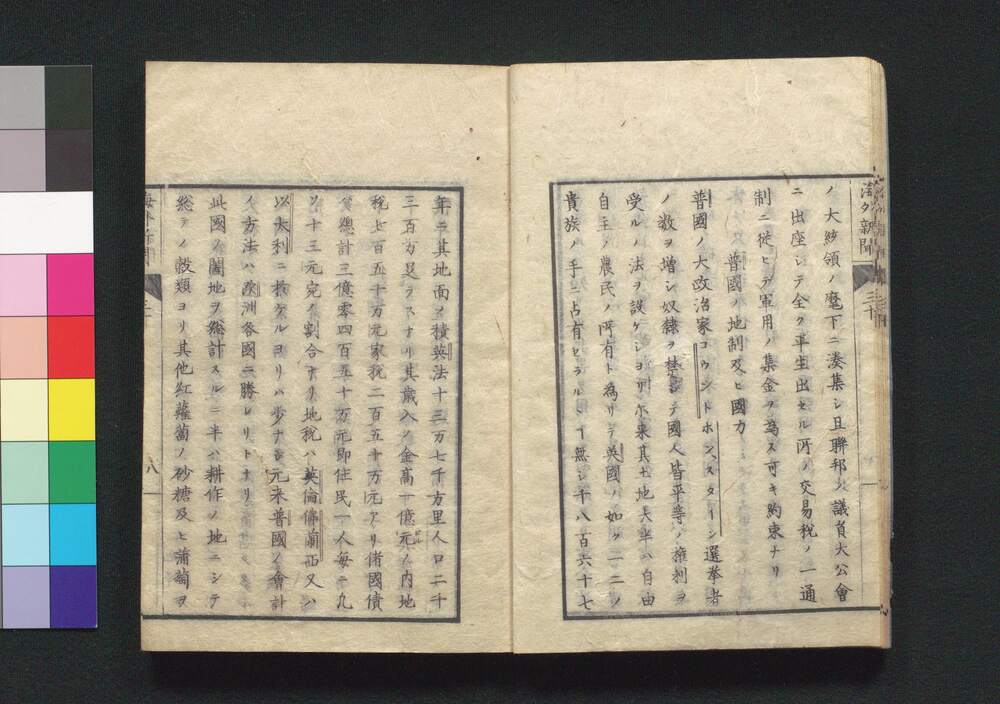 海外新聞
三十
ノ大統領ノ麾下ニ湊集シ且聯邦ノ議員大公會
ニ出座シテ全ク平生出セル所ノ交易税ノ一通
制ニ從ヒテ軍用ノ集金ヲ為ス可キ約束ナリ
普國ノ地制及ヒ國力
普國ノ大政治家コウントホンスターイン選挙者
ノ数ヲ増シ奴隷ヲ禁シテ國人皆平等ノ權利ヲ
受ルノ法ヲ設ケシヨリ尓来其土地大半ハ自由
自主ノ農民ノ所有ト為リテ英國ノ如ク一二ノ
貴族ノ手ニ占有セラルヽ丁無シ千八百六十七
年ニ其地面ノ積英法十三万七千方里人口二千
三百万足ラスナリ其歳入ノ金高一億元ノ内地
税七百五十万元家税二百五十万元アリ偖國債
ノ總計三億零四百五十万元即住民一人毎ニ九
ツ十三元宛ノ割合ナリ地税ハ英倫佛蘭西又ハ
以太利ニ於ケルヨリハ少ナシ元来普國ノ會計
ノ方法ハ欧洲各國ニ勝レリトナリ
此國ノ闔地ヲ総計スルニ半ハ耕作ノ地ニシテ
総テノ穀類ヨリ其他紅蘿蔔ノ砂糖及ヒ蒲萄ヲ
海外新聞
三十
八